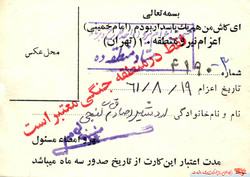 بسمه تعالی
ای کاش من هم یک پاسدار بودم (امام خمینی)
اعزام نیرو منطقه ۱۰ (تهران)
محل عکس
ستاد منطقه ده
شماره ۴۱۹۰-۳
تاریخ اعزام ۶۱/۸/۱۹
نام و نام خانوادگی: اردشیر صادق گنجی
فقط در منطقه جنگی معتبر است
مهر و امضاء مسئول
مدت اعتبار این کارت از تاریخ صدور سه ماه میباشد